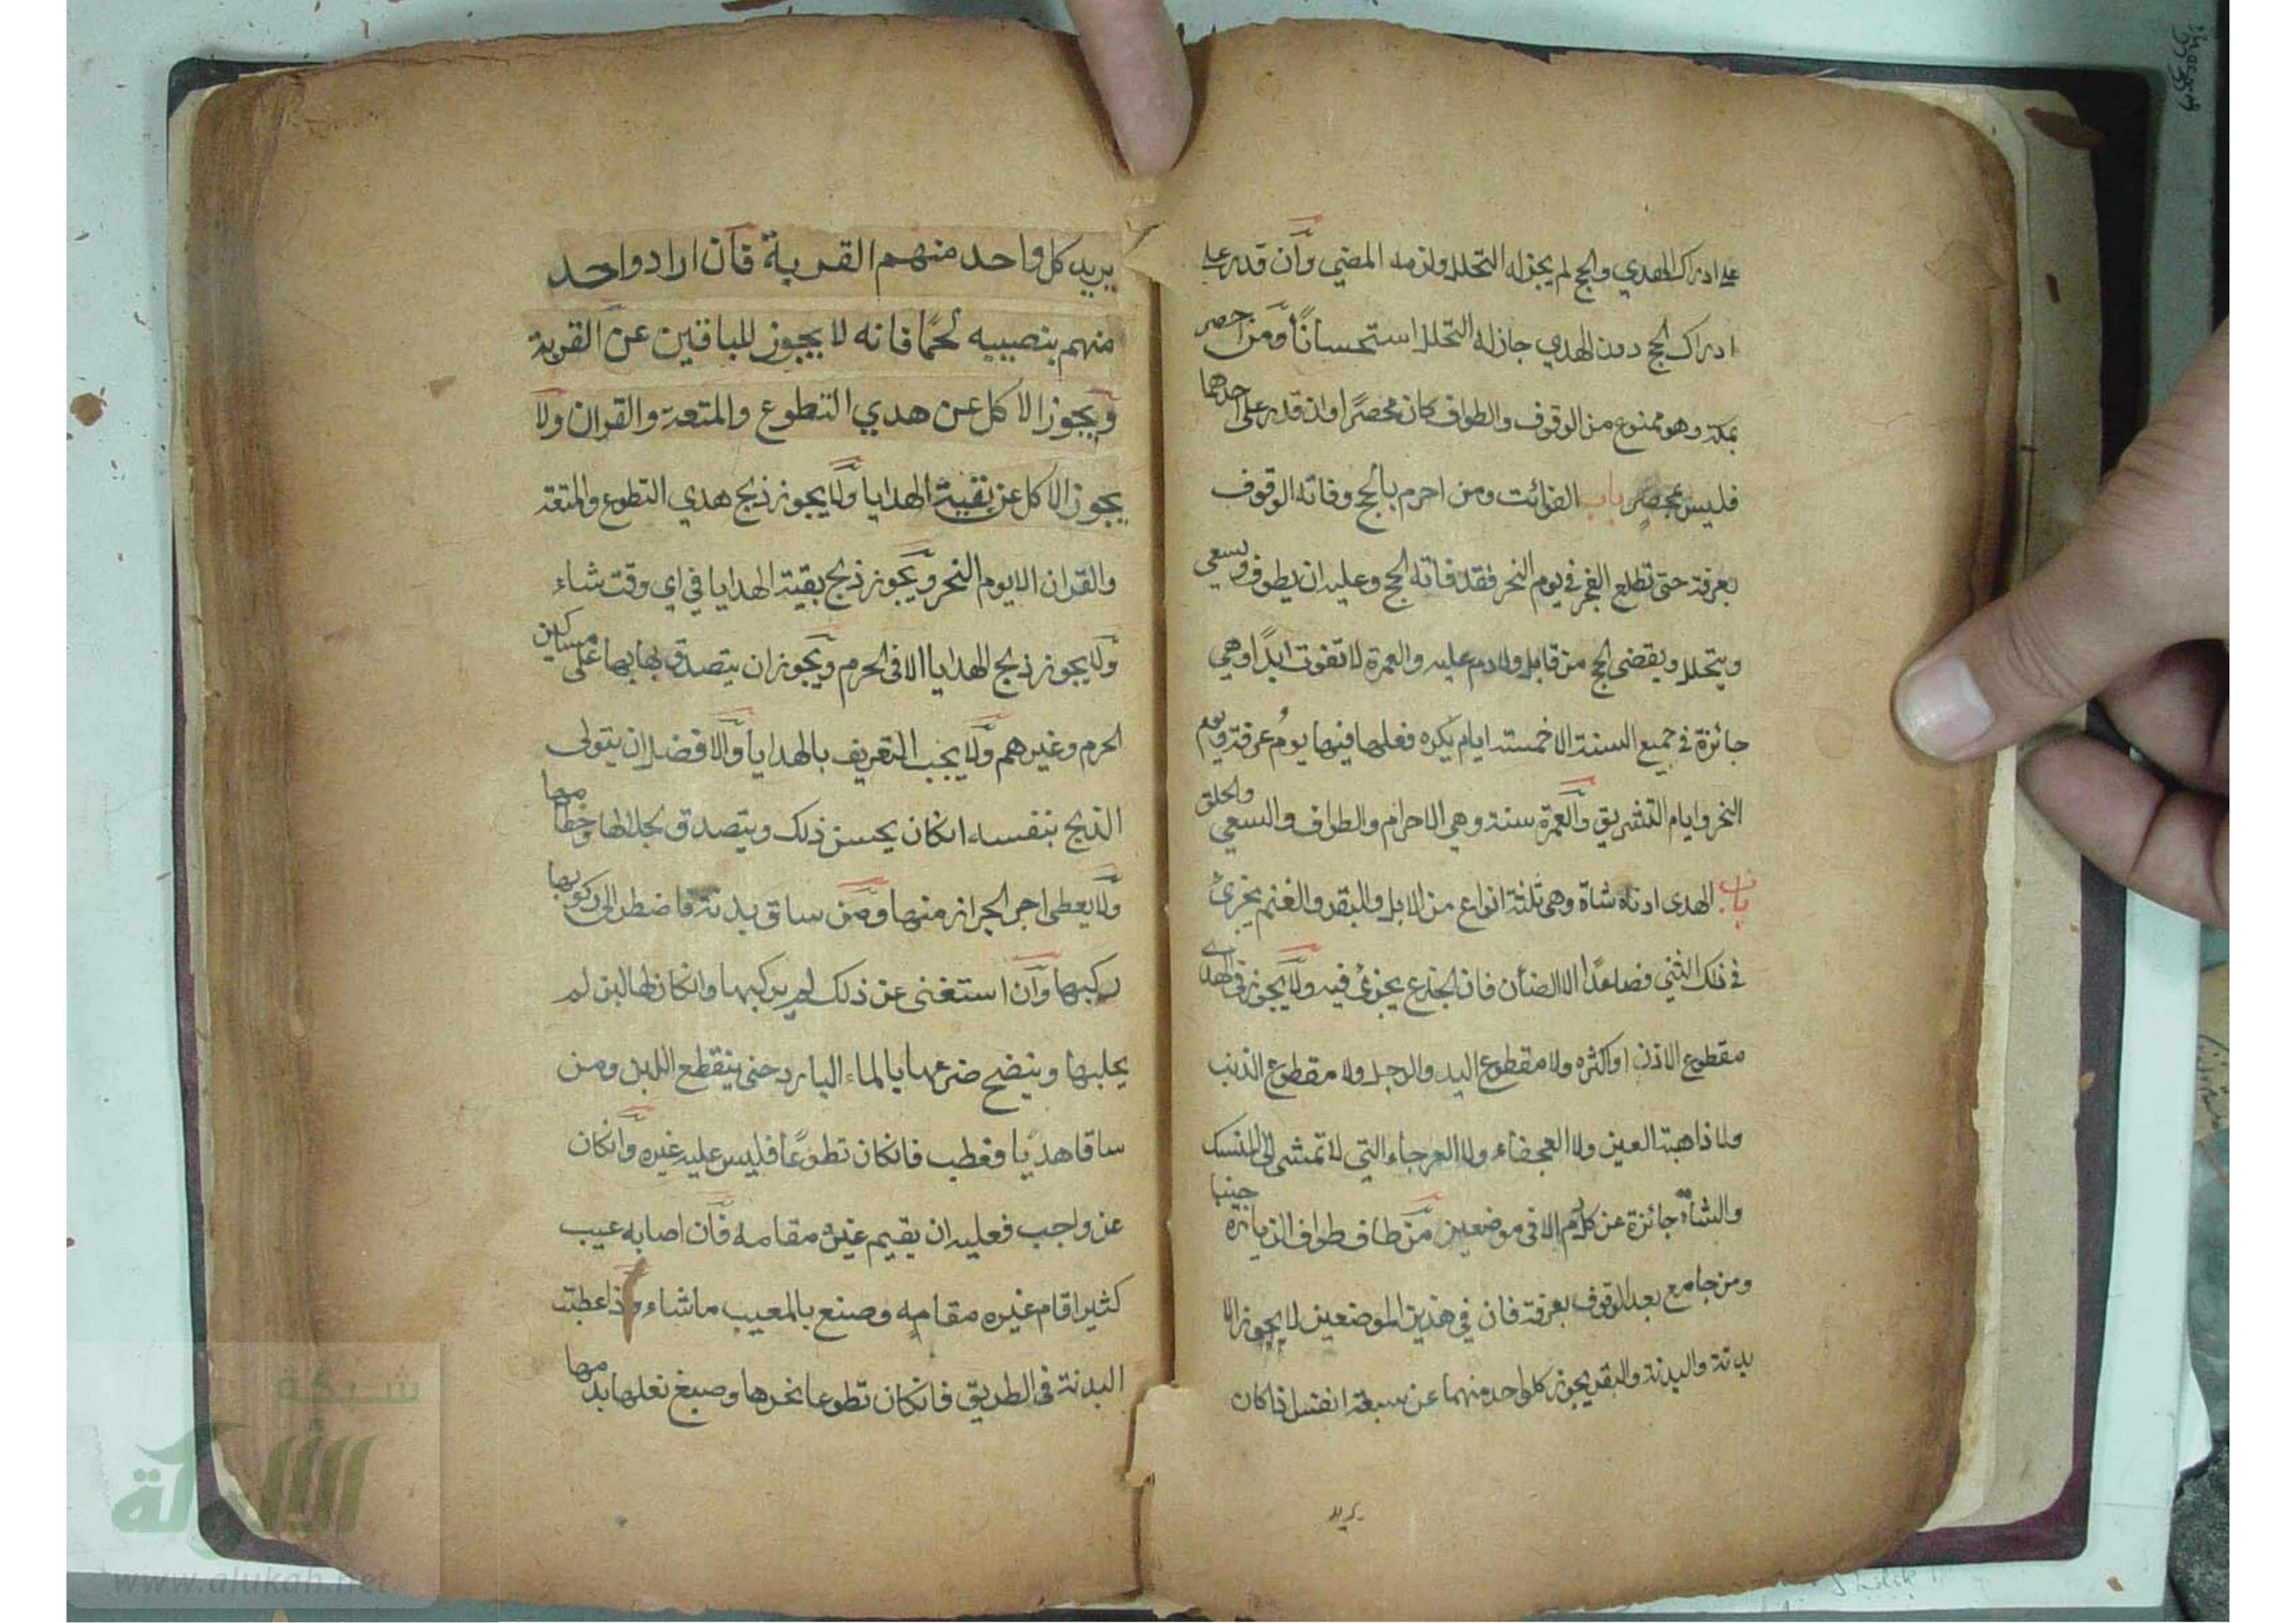 على ادراك الهدي والحج لم يجز له التحلل ولزمه المضي وان قدر على
ادراك الحج دون الهدي جاز له التحلل استحسانًا ومن احصر
بمكة وهو ممنوع من الوقوف والطواف كان محصرًا وان قدر على احدهما
فليس بمحصر باب الفوائت ومن احرم بالحج وفاته الوقوف
بعرفة حتى تطلع الفجر في يوم النحر فقد فاته الحج وعليه ان يطوف ويسعى
ويتحلل ويقضى الحج من قابل ولا دم عليه والعمرة لا تفوت ابدًا وهي
جائزة في جميع السنة الا خمسة ايام يكره فعلها فيها يوم عرفة ويوم
النحر وايام التشريق والعمرة سنة وهي الاحرام والطواف والسعي والحلق
باب الهدى ادناه شاة وهي ثلثة انواع من الابل والبقر والغنم يجزئ
في ذلك الثني فصاعدًا الا الضأن فان الجذع يجزئ فيه ولا يجوز في الهدي
مقطوع الاذن او اكثره ولا مقطوع اليد والرجل ولا مقطوع الذنب
ولا ذاهبة العين ولا العجفاء ولا العرجاء التي لا تمشى الى المنسك
والشاة جائزة عن كل دم الا في موضعين من طاف طواف الزيارة جنبا
ومن جامع بعد الوقوف بعرفة فان في هذين الموضعين لا يجوز الا
بدنة والبدنة والبقر يجوز كل واحد منهما عن سبعة انفس اذا كان
يريد
يريد كل واحد منهم القربة فان اراد واحد
منهم بنصيبه لحمًا فانه لا يجوز للباقين عن القربة
ويجوز الاكل عن هدي التطوع والمتعة والقران ولا
يجوز الاكل عن بقية الهدايا ولا يجوز ذبح هدي التطوع والمتعة
والقران الا يوم النحر ويجوز ذبح بقية الهدايا في اي وقت شاء
ولا يجوز ذبح الهدايا الا فى الحرم ويجوز ان يتصدق بها على مساكين
الحرم وغيرهم ولا يجب التعريف بالهدايا والافضل ان يتولى
الذبح بنفسه انكان يحسن ذلك ويتصدق بجلالها وخطامها
ولا يعطى اجر الجزار منها ومن ساق بدنة فاضطر الى ركوبها
ركبها وان استغنى عن ذلك لم يركبها وانكان لها لبن لم
يحلبها وينضح ضرعها بالماء البارد حتى ينقطع اللبن ومن
ساقا هديًا فعطب فانكان تطوعًا فليس عليه غيره وانكان
عن واجب فعليه ان يقيم غيره مقامه فان اصابه عيب
كثير اقام غيره مقامه وصنع بالمعيب ما شاء واذا عطبت
البدنة فى الطريق فانكان تطوعا نحرها وصبغ نعلها بدمها
شبكة
الألوكة
www.alukah.net